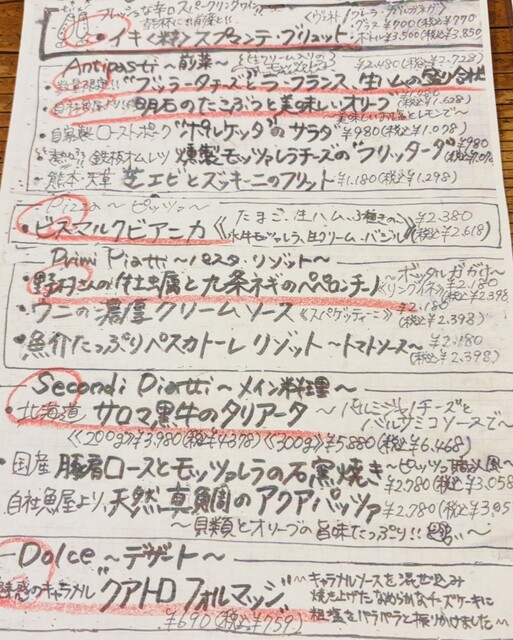 フレッシュな辛口スパークリングワイン
イキ《粋》スプマンテ・ブリュット
グラス ¥700(税込¥770
ボトル ¥3,500(税込¥3,850
Antipasti～前菜～
¥2,480(税込¥2,728)
数量限定!! "ブッラータチーズ"とラ・フランス、生ハムの盛り合せ
明石のたこぶつと美味しいオリーブ
(税込¥1,628)
・自家製ローストポーク"ポルケッタ"のサラダ ¥980(税込¥1,078)
鉄板オムレツ 燻製モッツァレラチーズの"フリッタータ" ¥980
・熊本・天草 芝エビとズッキーニのフリット ¥1,180(税込¥1,298)
Pizza～ピッツァ～
・ビスマルクビアンカ 《たまご、生ハム、3種きのこ ¥2,380
水牛モッツァレラ、生クリーム、バジル》(税込¥2,618)
Primi Piatti～パスタ・リゾット～
・野村さんの からすみと九条ネギのペペロンチーノ ～ボッタルガがけ～
《リングイネ》 ¥2,180 (税込¥2,398
・ウニの濃厚クリームソース 《スパゲッティーニ》 ¥2,180 (税込¥2,398)
・魚介たっぷりペスカトーレリゾット～トマトソース～ ¥2,180
(税込¥2,398)
Secondi Piatti～メイン料理～
・北海道 サロマ黒牛のタリアータ ～パルミジャーノチーズと
バルサミコソースで～
《200g》¥3,980(税込¥4,378)《300g》¥5,880(税込¥6,468)
・国産 豚肩ロースとモッツァレラの石窯焼き ～ピッツァ職人風～
¥2,780(税込¥3,058
自社魚屋より、天然真鯛のアクアパッツァ ¥2,780(税込¥3,05
～貝類とオリーブの旨味たっぷり!!
Dolce～デザート～
魅惑のキャラメル"クアトロフォルマッジ" ～キャラメルソースを混ぜ込み
焼き上げたなめらかなチーズケーキに
粗塩をパラパラと振りかけました～
¥690(税込¥759)